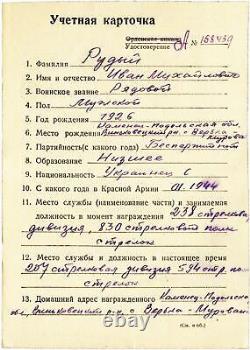 Учетная карточка
Орденская книжка
Удостоверение А № 158459
1. Фамилия Рудый
2. Имя и отчество Иван Михайлович
3. Воинское звание Рядовой
4. Пол Мужской
5. Год рождения 1926
Каменец-Подольская обл.
6. Место рождения Виньковецкий р-н с-Вербка-Мурован
7. Партийность (с какого года) Беспартийный
8. Образование Низшее
9. Национальность Украинец
10. С какого года в Красной Армии 01.1944
11. Место службы (наименование части) и занимаемая
должность в момент награждения 238 стрелковая
дивизия, 830 стрелковый полк
стрелок
12. Место службы и должность в настоящее время
207 стрелковая дивизия 594 стр. полк
стрелок
13. Домашний адрес награжденного Каменец-Подольск.
обл., Виньковецкий р-н с Вербка-Мурован
(См. н/об.)